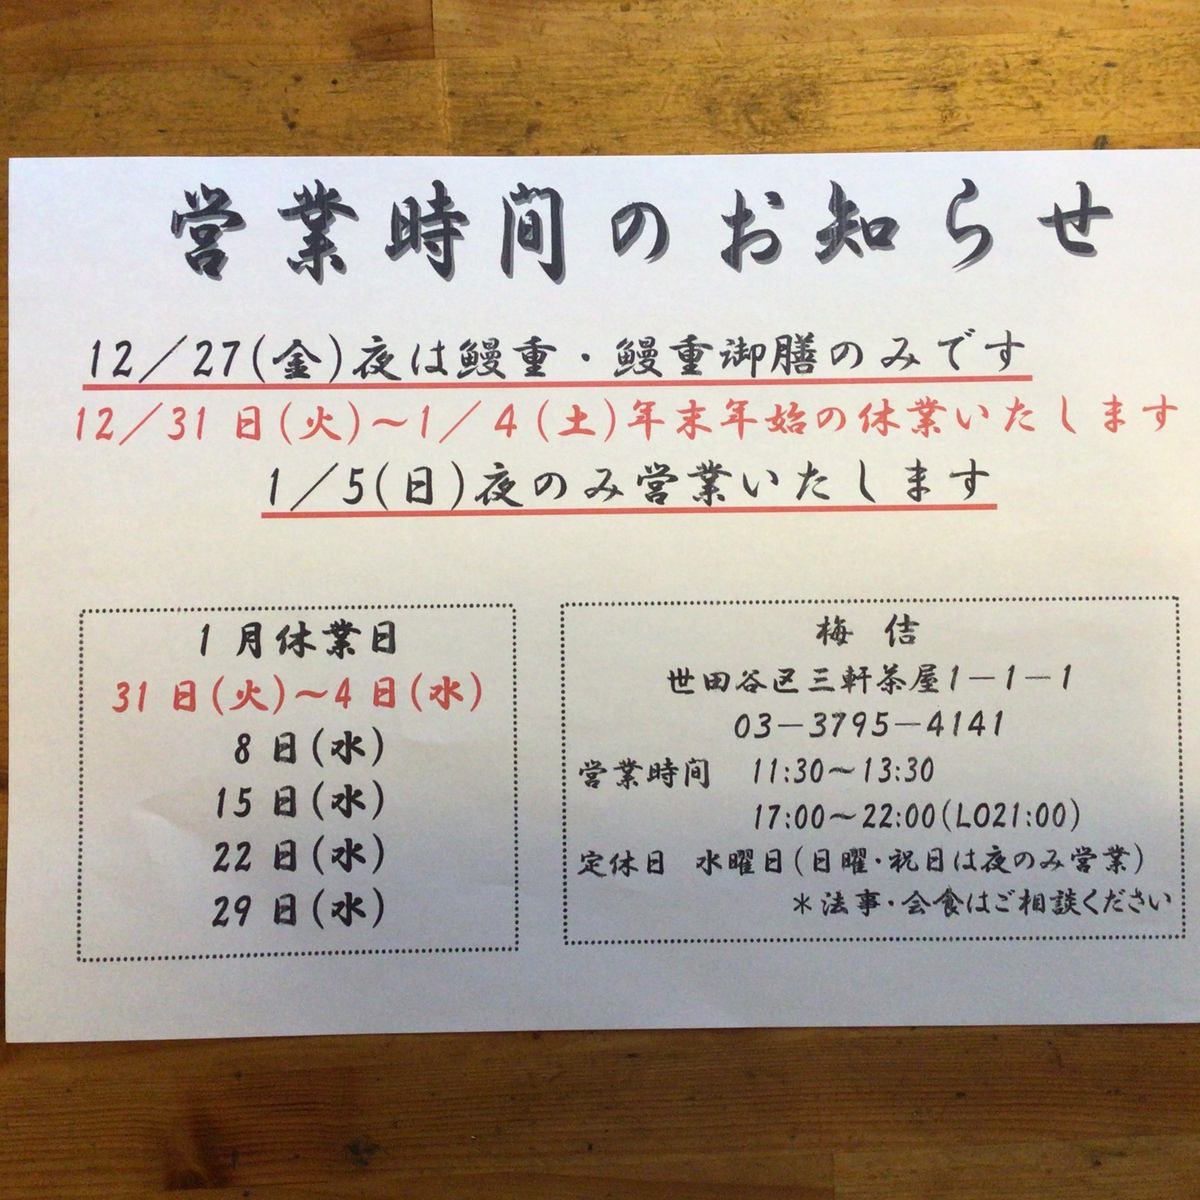 営業時間のお知らせ
12／27(金)夜は鰻重・鰻重御膳のみです
12／31日(火)～1／4(土)年末年始の休業いたします
1／5(日)夜のみ営業いたします
1月休業日
31日(火)～4日(水)
8日(水)
15日(水)
22日(水)
29日(水)
梅佶
世田谷区三軒茶屋1－1－1
03－3795－4141
営業時間 11:30～13:30
17:00～22:00(LO21:00)
定休日 水曜日(日曜・祝日は夜のみ営業)
＊法事・会食はご相談ください